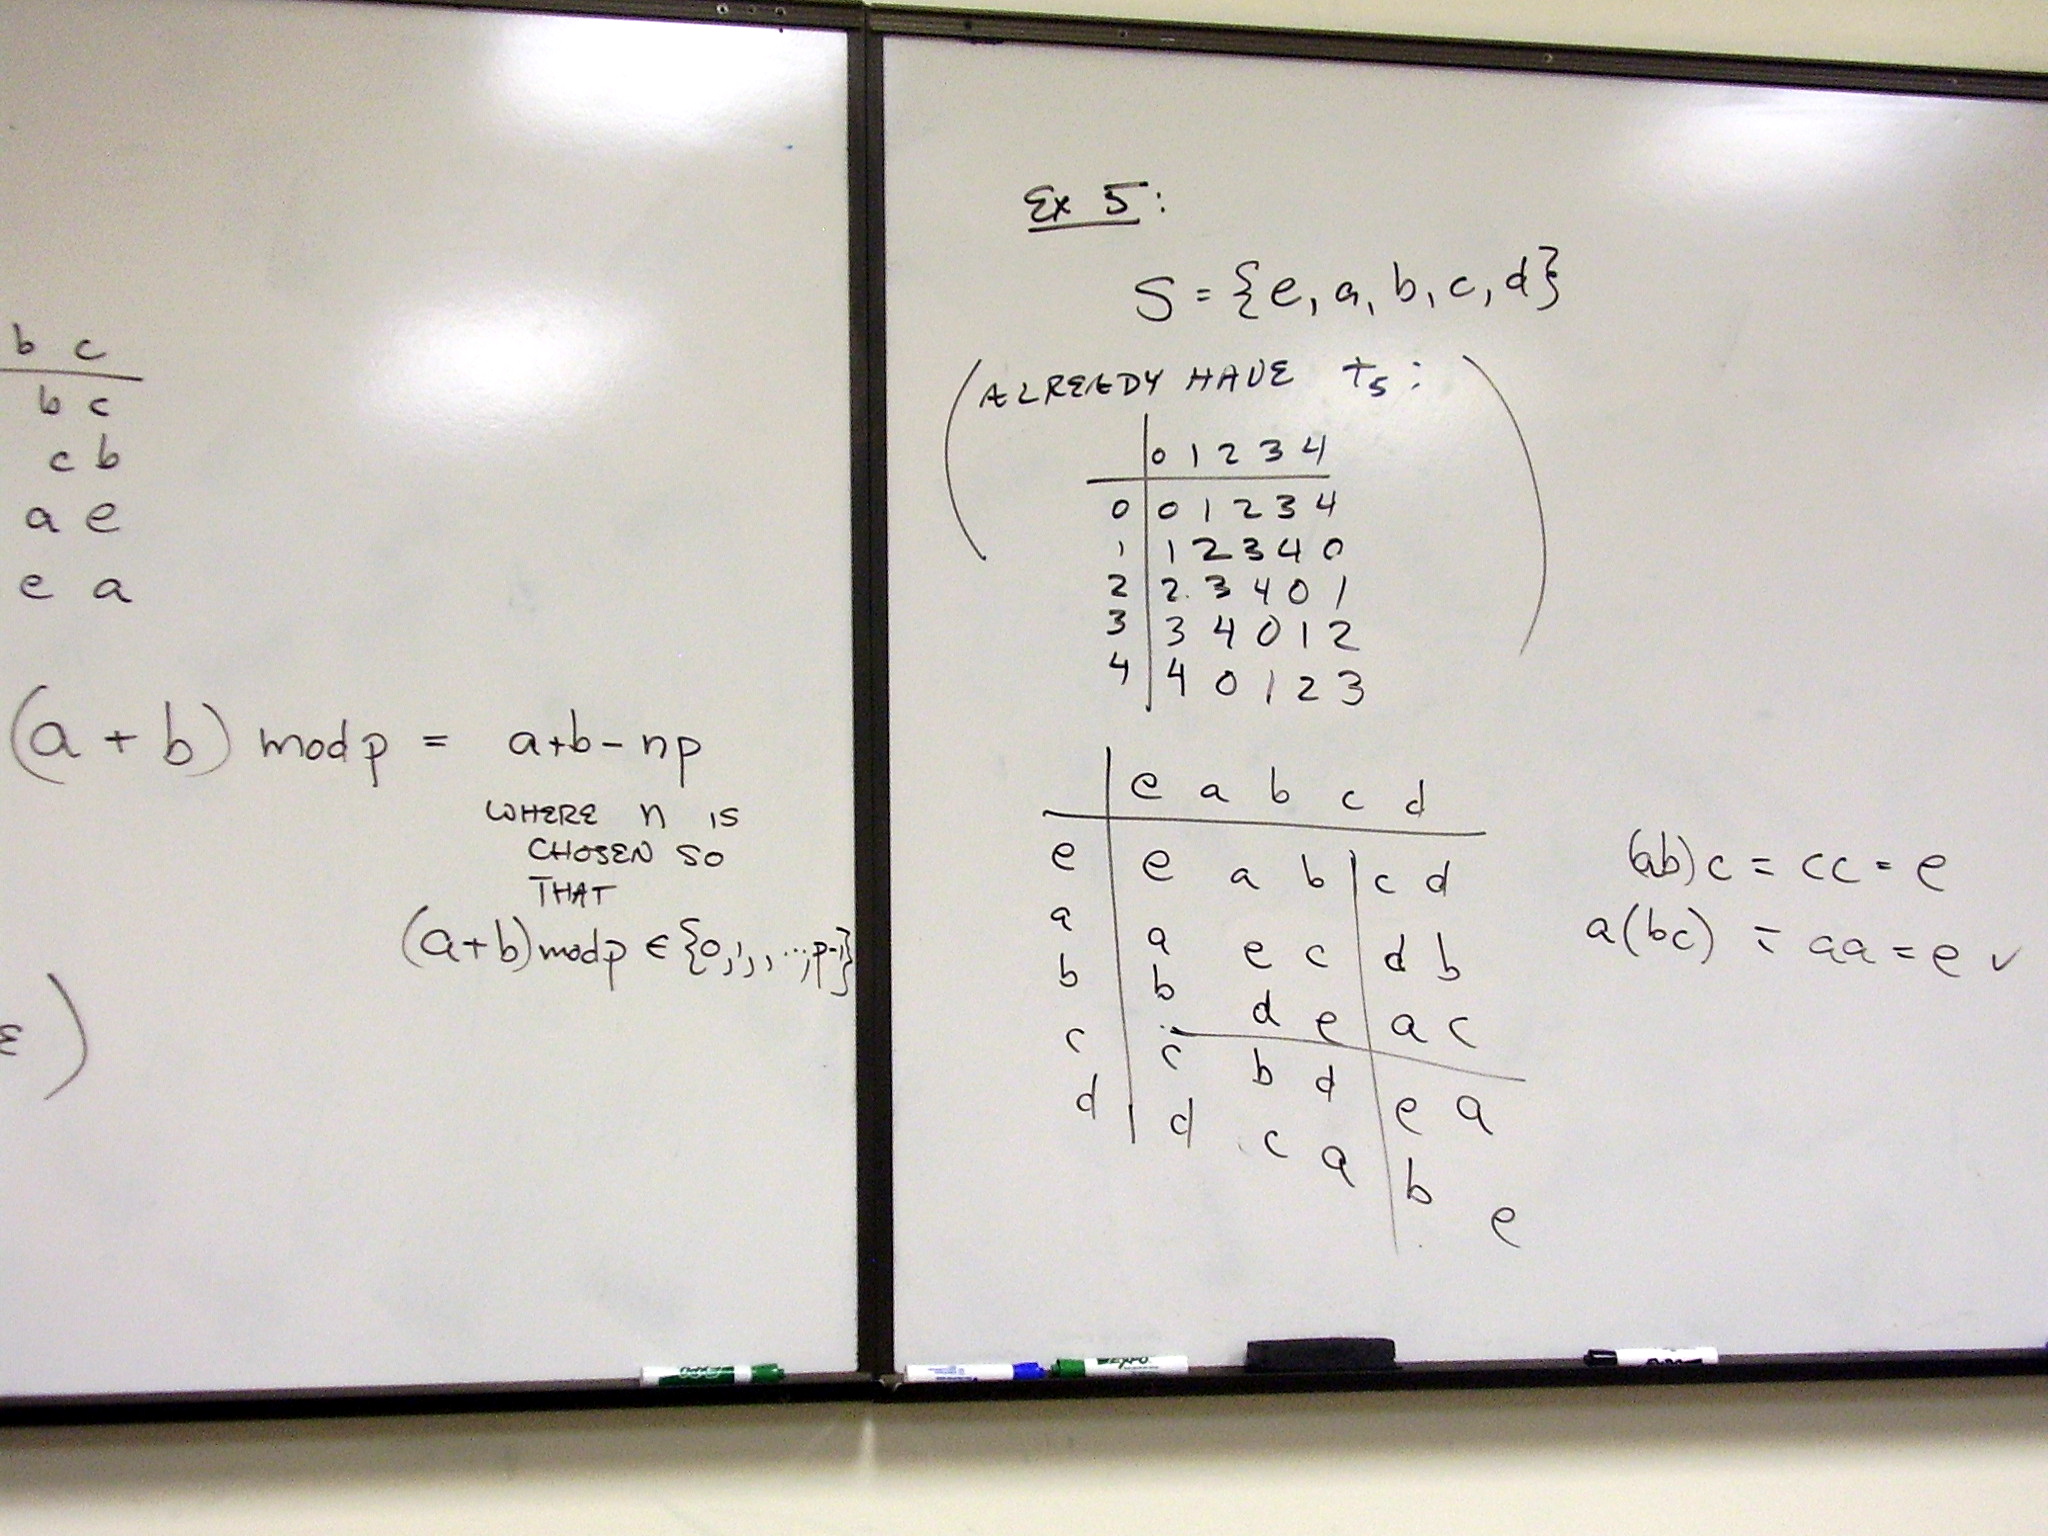 b c
b c
c b
a e
e a
(a + b) mod p = a+b - np
WHERE n IS
CHOSEN SO
THAT
(a+b) mod p ∈ {0,1,,...,p-1}
ε )
Ex 5:
S = {e, a, b, c, d}
(ALREADY HAVE +₅: )
0 1 2 3 4
0 0 1 2 3 4
1 1 2 3 4 0
2 2 3 4 0 1
3 3 4 0 1 2
4 4 0 1 2 3
e a b c d
e e a b c d
a a e c d b
b b d e a c
c c b d e a
d d c a b e
(ab)c = cc = e
a(bc) = aa = e ✓
EXPO